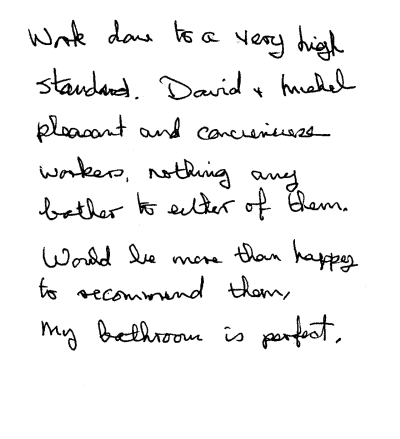 Work done to a very high
standard. David + Michel
pleasant and
workers, nothing any
bother to either of them.
Would be more than happy
to recommend them,
My bathroom is perfect.